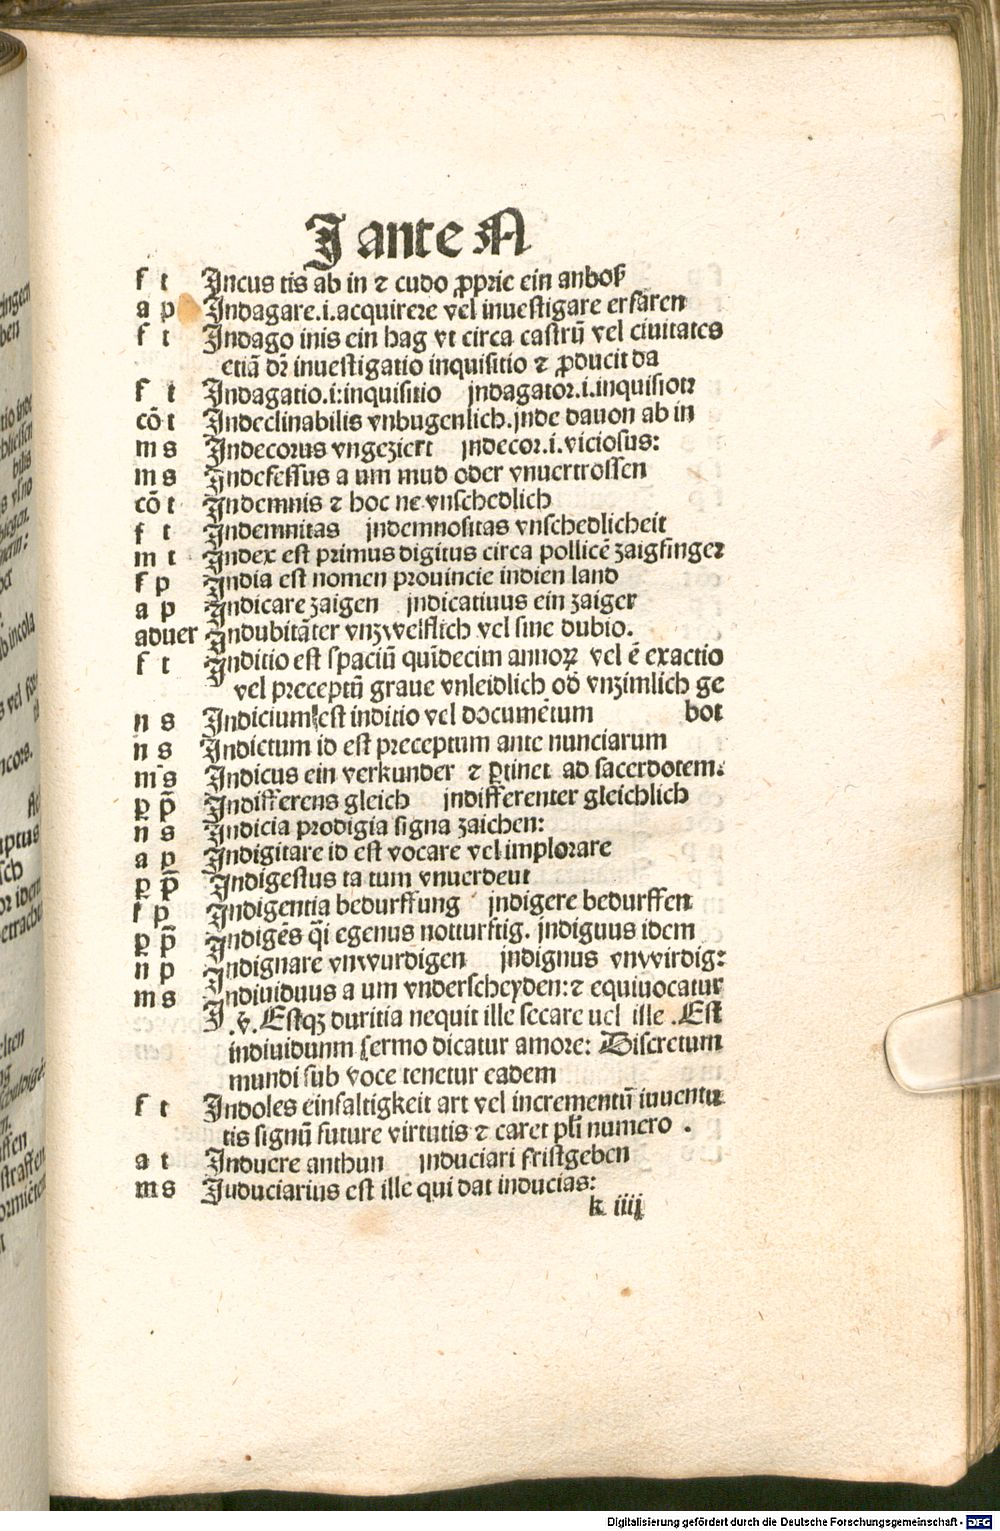 J ante N
f t Jncus tis ab in ⁊ cudo ꝓprie ein anboß
a p Jndagare.i.acquirere vel inuestigare erfaren
f t Jndago inis ein hag vt circa castrū vel ciuitates
etiā dr̄ inuestigatio inquisitio ⁊ ꝓducit da
f t Jndagatio.i:inquisitio jndagator.i.inquisiotr
cō t Jndeclinabilis vnbugenlich.jnde dauon ab in
m s Jndecorus vngeziert jndecor.i.viciosus:
m s Jndefessus a um mud oder vnuertrossen
cō t Jndemnis ⁊ hoc ne vnschedlich
f t Jndemnitas jndemnositas vnschedlicheit
m t Jndex est primus digitus circa pollicē zaigfinger
f p Jndia est nomen prouincie indien land
a p Jndicare zaigen jndicatiuus ein zaiger
aduer Jndubitāter vnzwelflich vel sine dubio.
f t Jnditio est spaciū quīdecim annoꝝ vel ē exactio
vel preceptū graue vnleidlich od̄ vnzimlich ge
n s Jndicium est inditio vel documētum bot
n s Jndictum id est preceptum ante nunciarum
m s Jndicus ein verkunder ⁊ ꝑtinet ad sacerdotem:
ꝑ p̄ Jndifferens gleich jndifferenter gleichlich
n s Jndicia prodigia signa zaichen:
a p Jndigitare id est vocare vel implorare
ꝑ p̄ Jndigestus ta tum vnuerdeut
f p Jndigentia bedurffung jndigere bedurffen
ꝑ p̄ Jndigēs q̄i egenus notturftig. jndiguus idem
n p Jndignare vnwurdigen jndignus vnwirdig:
m s Jndiuiduus a um vnderscheyden:⁊ equiuocatur
.v̄. Estqꝫ duritia nequit ille secare uel ille .Est
indiuidunm sermo dicatur amore: Discretum
mundi sub voce tenetur eadem
f t Jndoles einfaltigkeit art vel incrementū iuuentu
tis signū future virtutis ⁊ caret pl̄i numero .
a t Jnduere anthun jnduciari fristgeben
m s Juduciarius est ille qui dat inducias:
k iiij
Digitalisierung gefördert durch die Deutsche Forschungsgemeinschaft - DFG